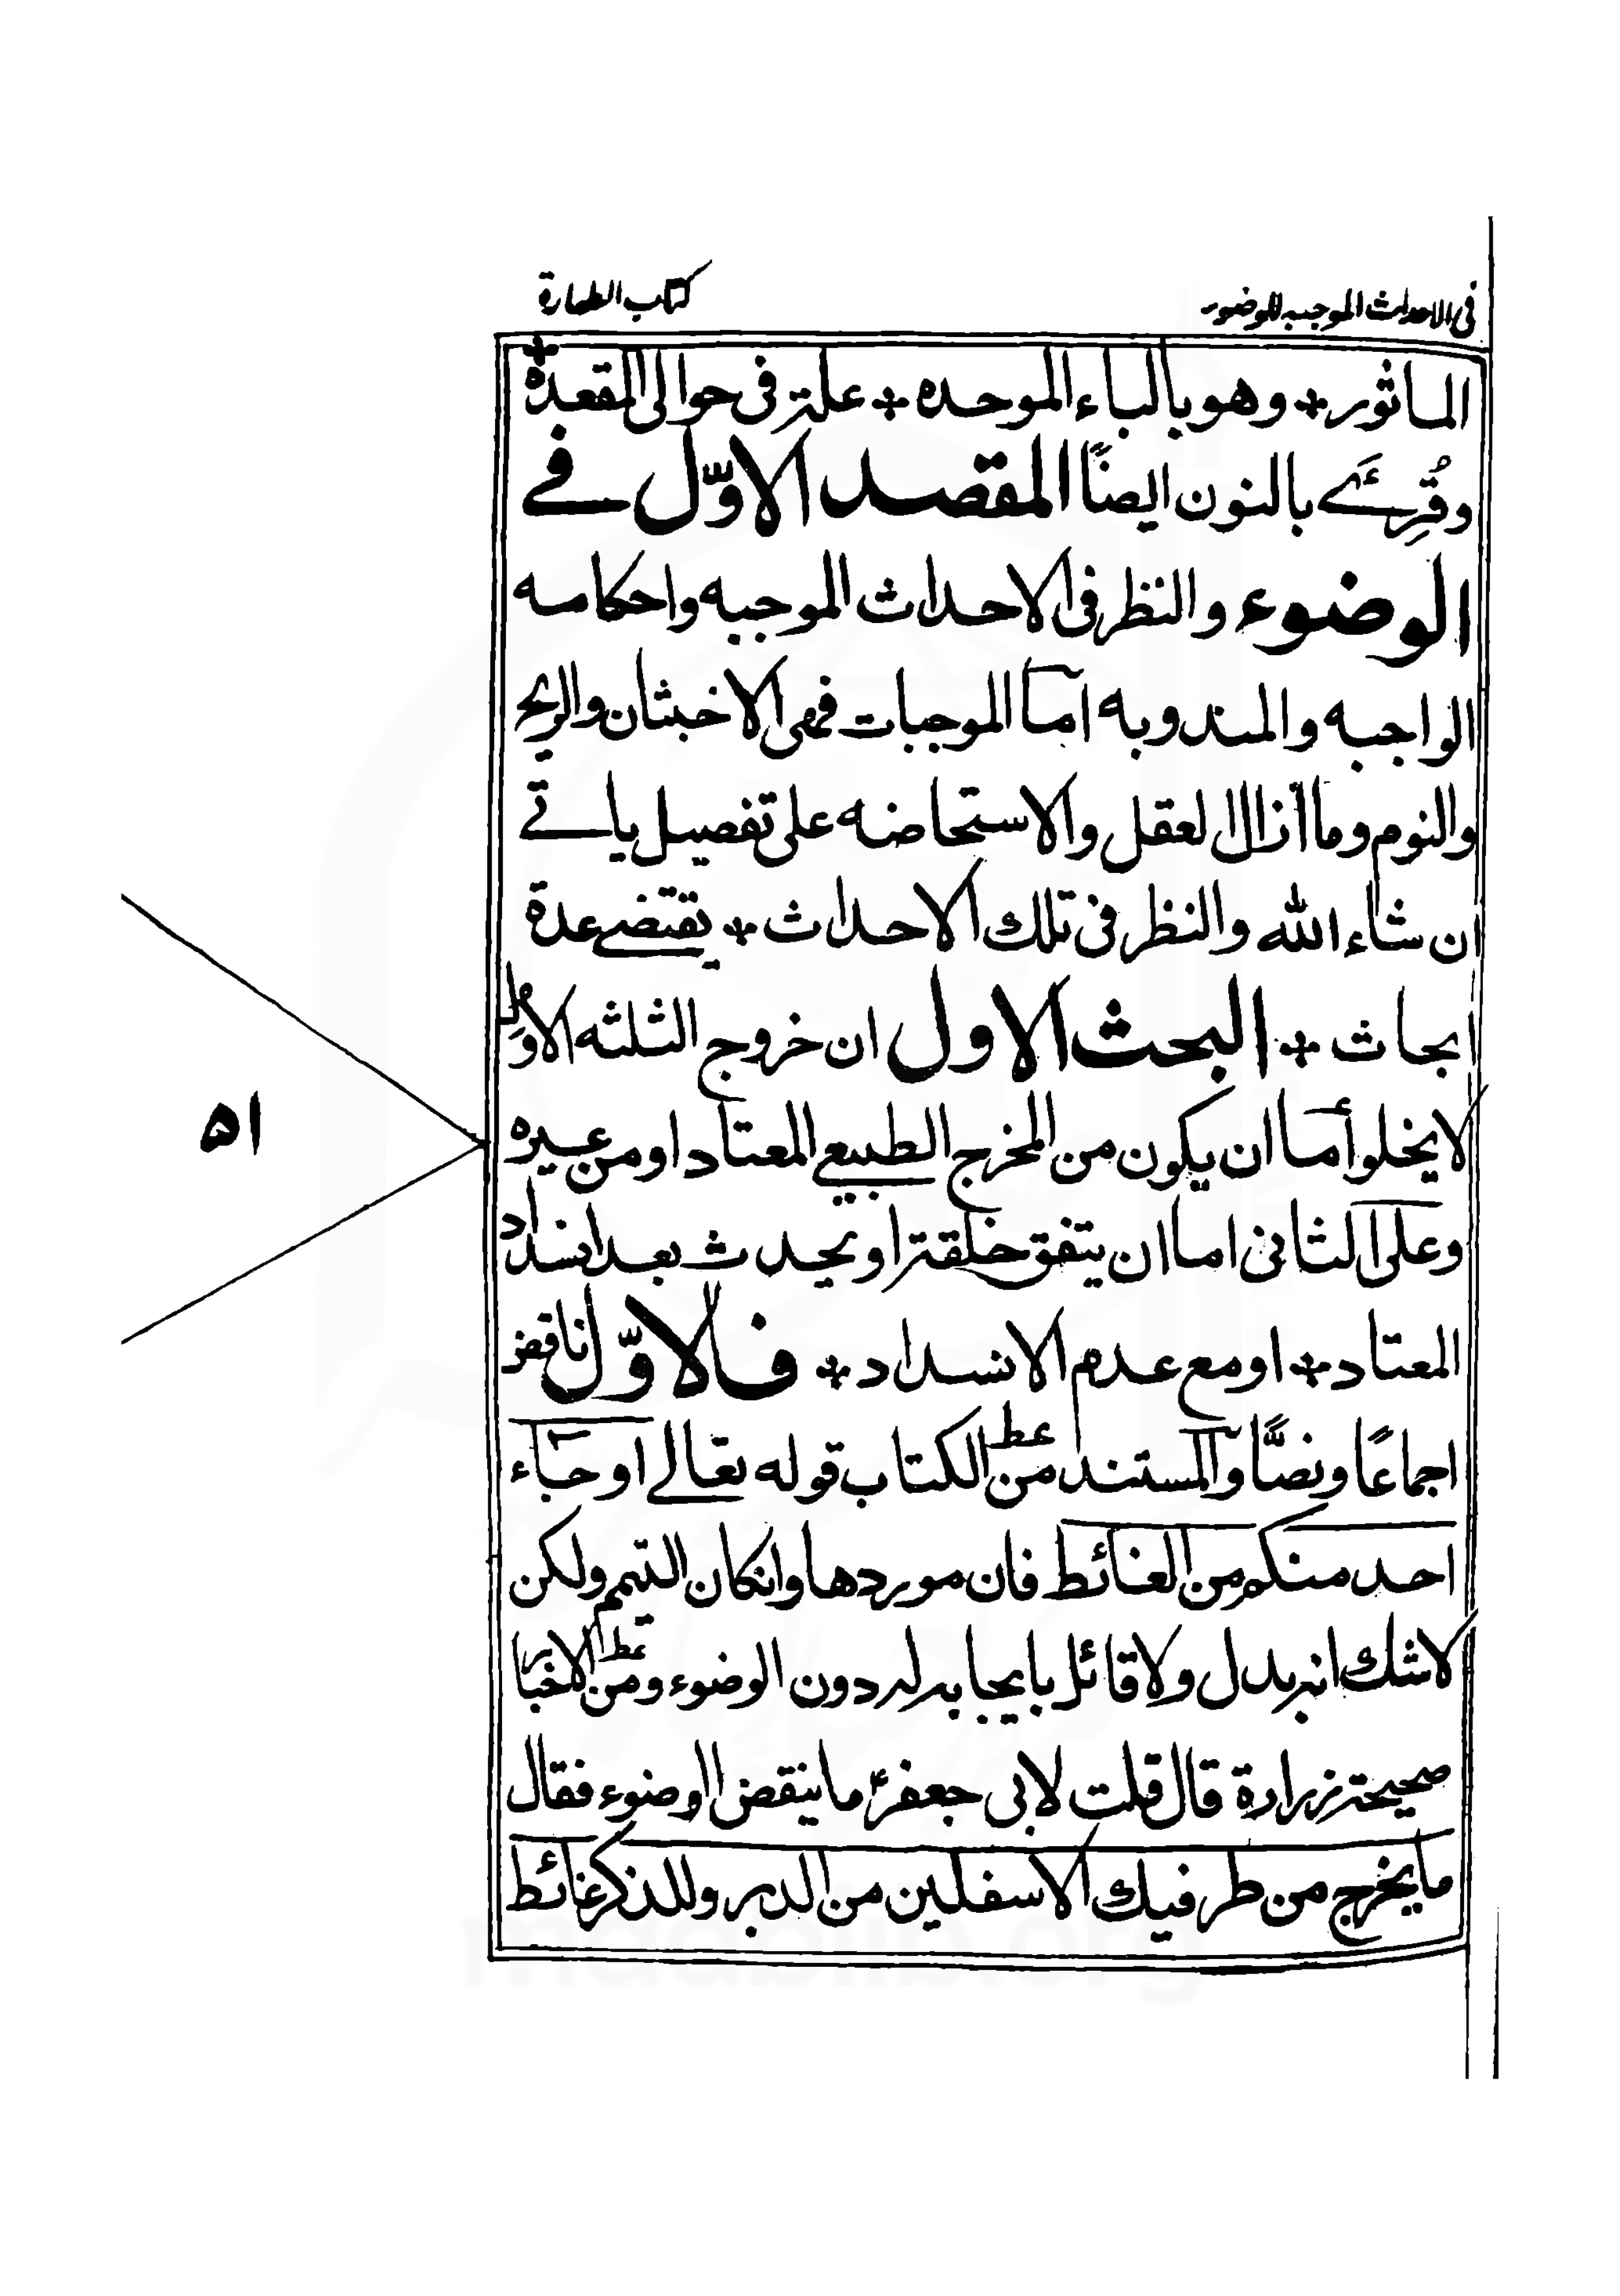 فى الاحداث الموجبه للوضوء
كتاب الطهارة
الماثور * وهو بالباء الموحده * علة فى حوالى المقعدة *
وقُرِئَ بالنون ايضًا المقصد الاوّل فے
الوضوء والنظر فى الاحداث الموجبه واحكامه
الواجبه والمندوبه امّا الموجبات فهى الاخبثان والريح
والنوم وما أزال العقل والاستحاضه على تفصيل ياتے
ان شاء الله والنظر فى تلك الاحداث * يقتضے عدة
ابحاث * البحث الاول ان خروج الثلثه الاُوَل
لا يخلوا أما ان يكون من المخرج الطبيعے المعتاد او من غيره
وعلى الثانى اما ان يتفق خلقة او يحدث بعد انسداد
المعتاد * او مع عدم الانسداد * فالاوّل ناقض
اجماعًا ونصًّا والمستند من الكتاب قوله تعالے او جاء
احد منكم من الغائط فان موردها وانكان التيمم ولكن
لا شك انه بدل ولا قائل بايجابه له دون الوضوء ومن الاخبار
صحيحة زرارة قال قلت لابى جعفرؑ ما ينقض الوضوء فقال
ما يخرج من طرفيك الاسفلين من الدبر وللذكر غائط
۵۱